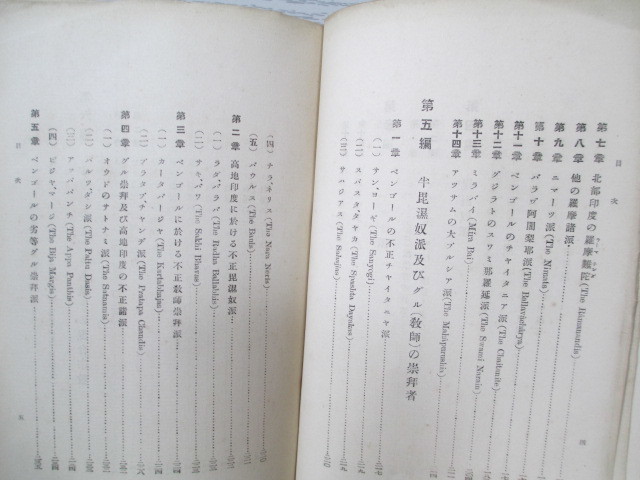 目次
第七章 北部印度の羅摩難陀(The Rámanandis)
第八章 他の羅摩諸派
第九章 ニマーツ派(The Nimats)
第十章 バラヴ阿闍梨耶派(The Ballaváchárya)
第十一章 ベンゴールのチャイタニア派(The Chaitanite)
第十二章 グジラトのスワミ那羅延派(The Swami Narain)
第十三章 ミラバイ(Mira Bai)
第十四章 アッサムの大プルシア派(The Mahápurushia)
第五編 半毘濕奴派及びグル(教師)の崇拜者
第一章 ベンゴールの不正チャイタニヤ派
(一) サン・ヨーギ(The Sanyogi)
(二) スパスタ・ダヤカ(The Spashta Dayakas)
(三) サハジアス(The Sahajias)
四
(四) ナラ・ネリス(The Nara Neris)
(五) バウルス(The Bauls)
第二章 高地印度に於ける不正毘濕奴派
(一) ラダ・バラビ(The Radha Ballabhis)
(二) サキ・バワ(The Sakhi Bhavas)
第三章 ベンゴールに於ける不正教師崇拜派
(一) カータバージャ(The Kartabhajas)
(二) プラタプ・チャンダ派(The Pratapa Chandis)
第四章 グル崇拜及び高地印度の不正諸派
(一) オウジのサトナミ派(The Satnamis)
(二) パルツダシ派(The Paltu Dasis)
(三) アッパパンチ(The Appa Panthis)
(四) ビジャ・マージ(The Bija Margis)
第五章 ベンゴールの劣等グル崇拜派
目次
五